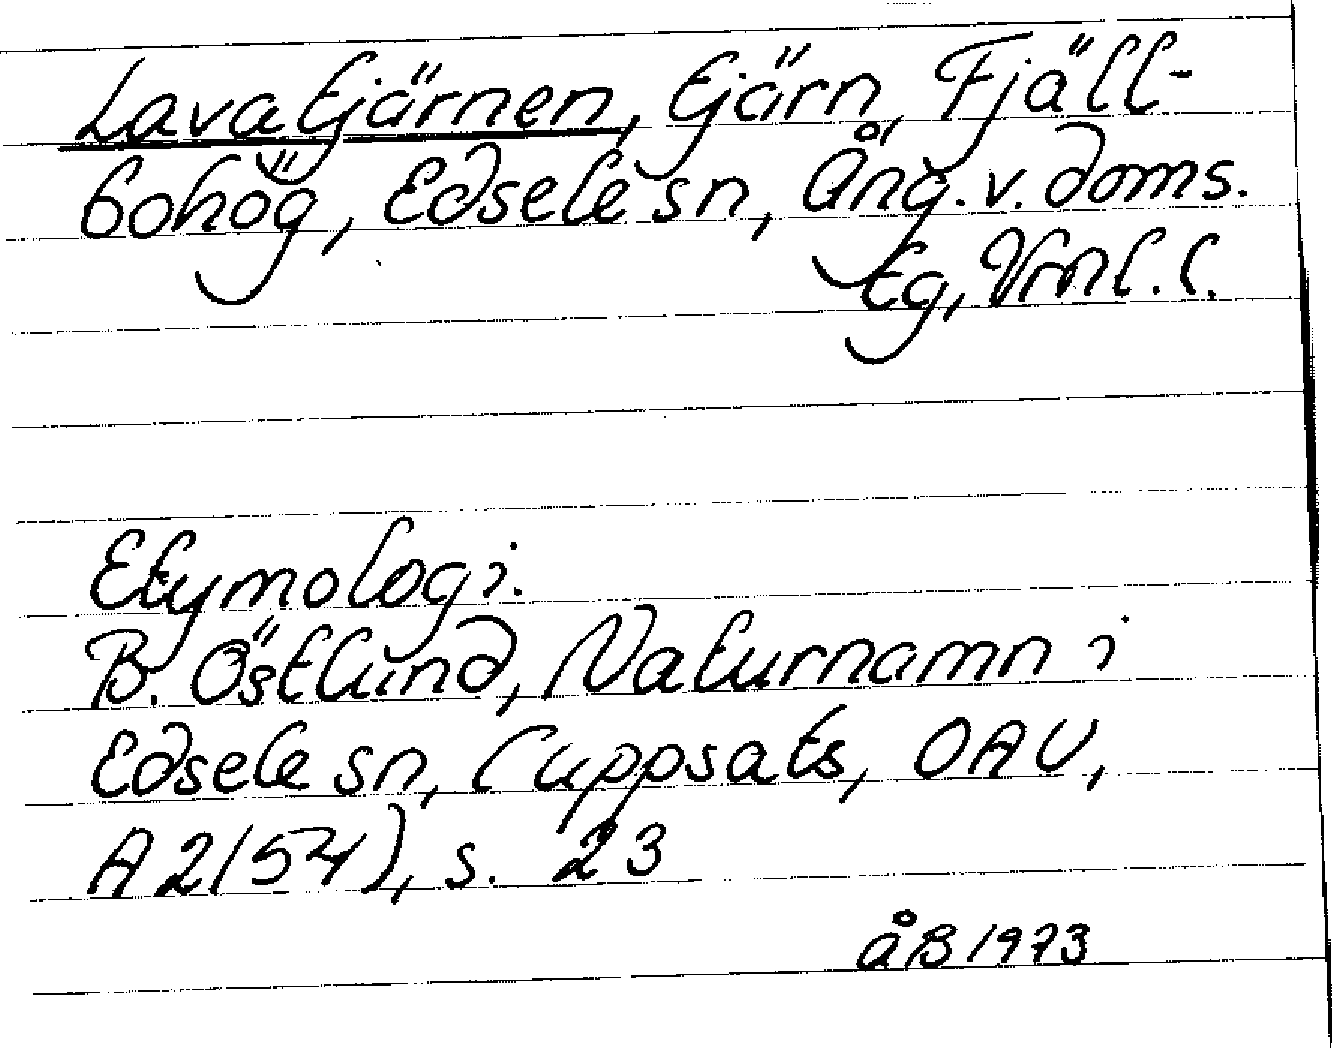 Lavatjärnen, tjärn, Fjäll-
bohög, Edsele sn, Ång. v. doms.
tg, Vrnl. l.
Etymologi.
B. Östlund, Naturnamn i
Edsele sn, (uppsats, OAU,
A2/54), s. 23
åB 1973